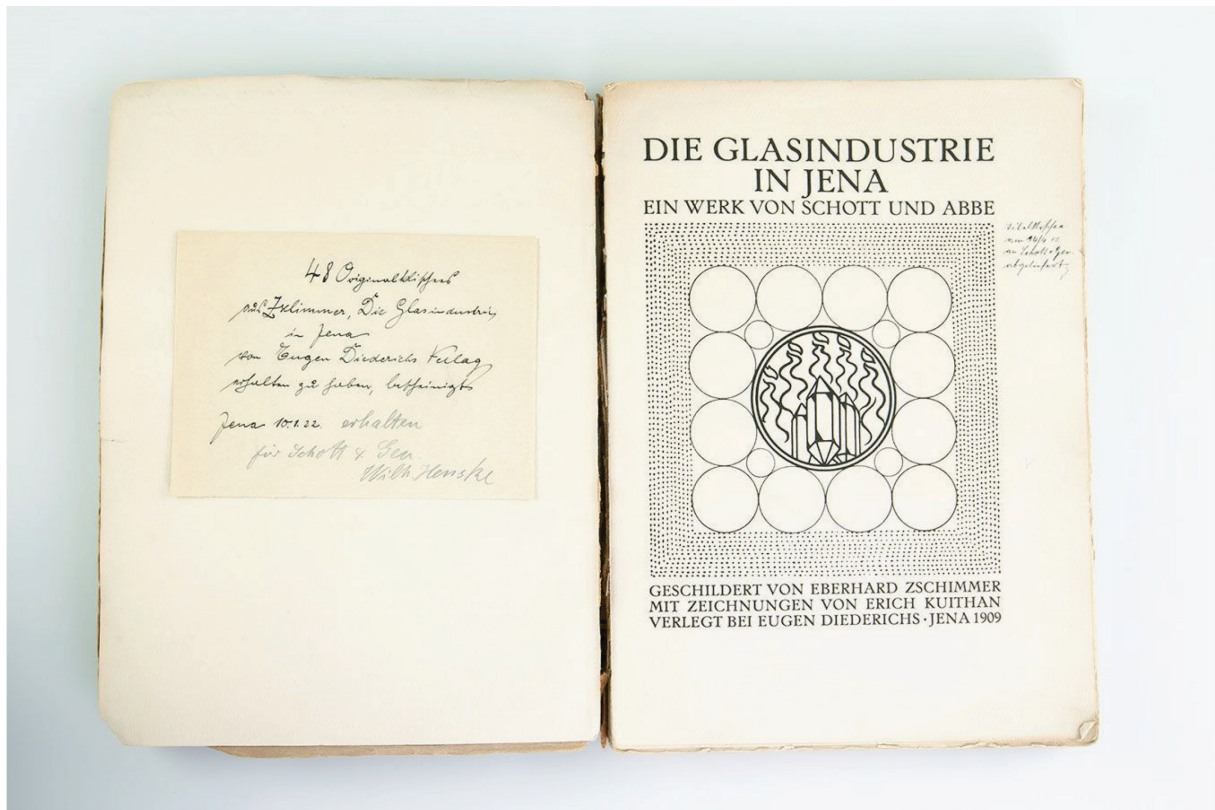 48 Originalklischees
aus Zschimmer, Die Glasindustrie
in Jena
von Eugen Diederichs Verlag
erhalten zu haben, bescheinigt
Jena 10.1.22. erhalten
für Schott & Gen.
Wilh. Henske
DIE GLASINDUSTRIE
IN JENA
EIN WERK VON SCHOTT UND ABBE
an Schott & Gen.
abgeliefert
GESCHILDERT VON EBERHARD ZSCHIMMER
MIT ZEICHNUNGEN VON ERICH KUITHAN
VERLEGT BEI EUGEN DIEDERICHS · JENA 1909